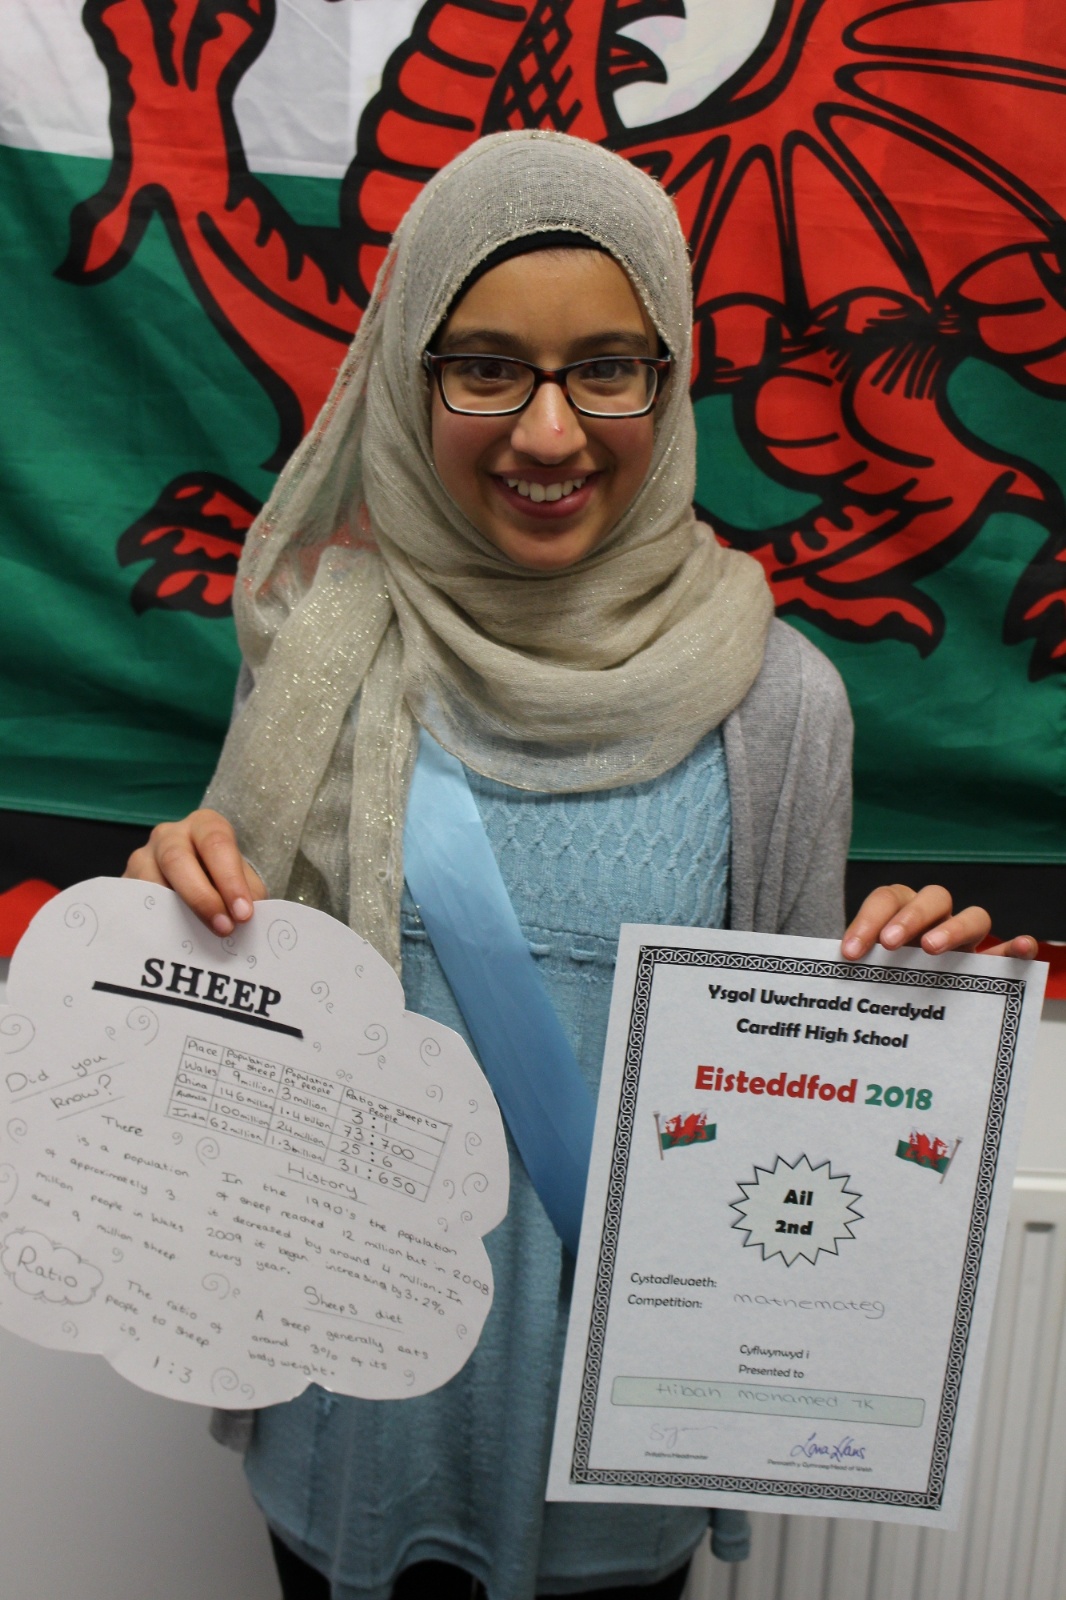 SHEEP
Did you
know?
There
is a population
of approximately 3
million people in Wales
and 9 million sheep
Ratio
The ratio of
people to sheep
is,
1:3
Place Population of sheep Population of people Ratio of sheep to people
Wales 9 million 3 million 3 : 1
China 146 million 1.4 billion 73 : 700
Australia 100 million 24 million 25 : 6
India 62 million 1.3 billion 31 : 650
History
In the 1990's the population
of sheep reached 12 million but in 2008
it decreased by around 4 million. In
2009 it began increasing by 3.2%
every year.
Sheeps diet
A sheep generally eats
around 3% of its
body weight.
Ysgol Uwchradd Caerdydd
Cardiff High School
Eisteddfod 2018
Ail
2nd
Cystadleuaeth:
Competition: mathemateg
Cyflwynwyd i
Presented to
Hibah Mohamed 7K